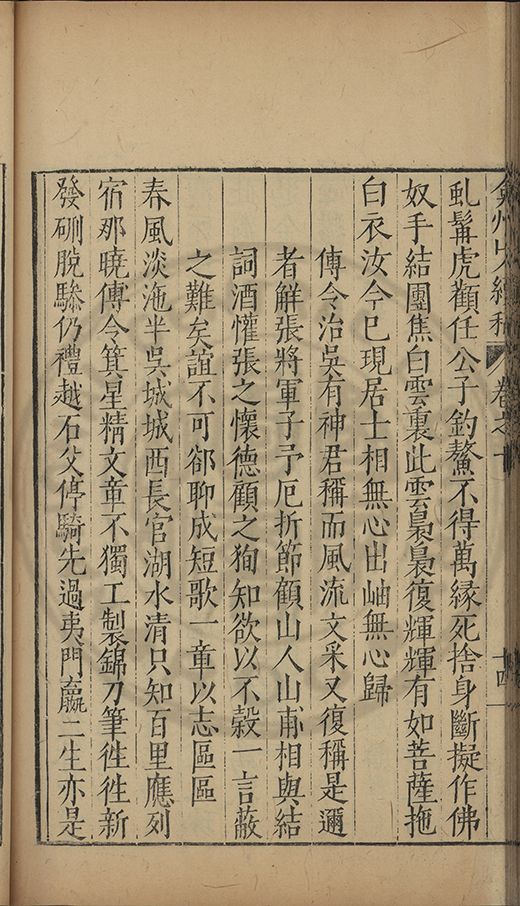 弇州山人續稿 卷之十 十四
虬髯虎顴任公子釣鰲不得萬緣死捨身斷擬作佛
奴手結團焦白雲裏此雲裊裊復輝輝有如菩薩拖
白衣汝今已現居士相無心出岫無心歸
傳令治吳有神君稱而風流文采又復稱是邇
者解張將軍子予厄折節顧山人山甫相與結
詞酒懽張之懷德顧之狥知欲以不穀一言蔽
之難矣誼不可郤聊成短歌一章以志區區
春風淡沲半吳城城西長官湖水清只知百里應列
宿那曉傅令箕星精文章不獨工製錦刀筆徃徃新
發硎脫驂仍禮越石父停騎先過夷門嬴二生亦是